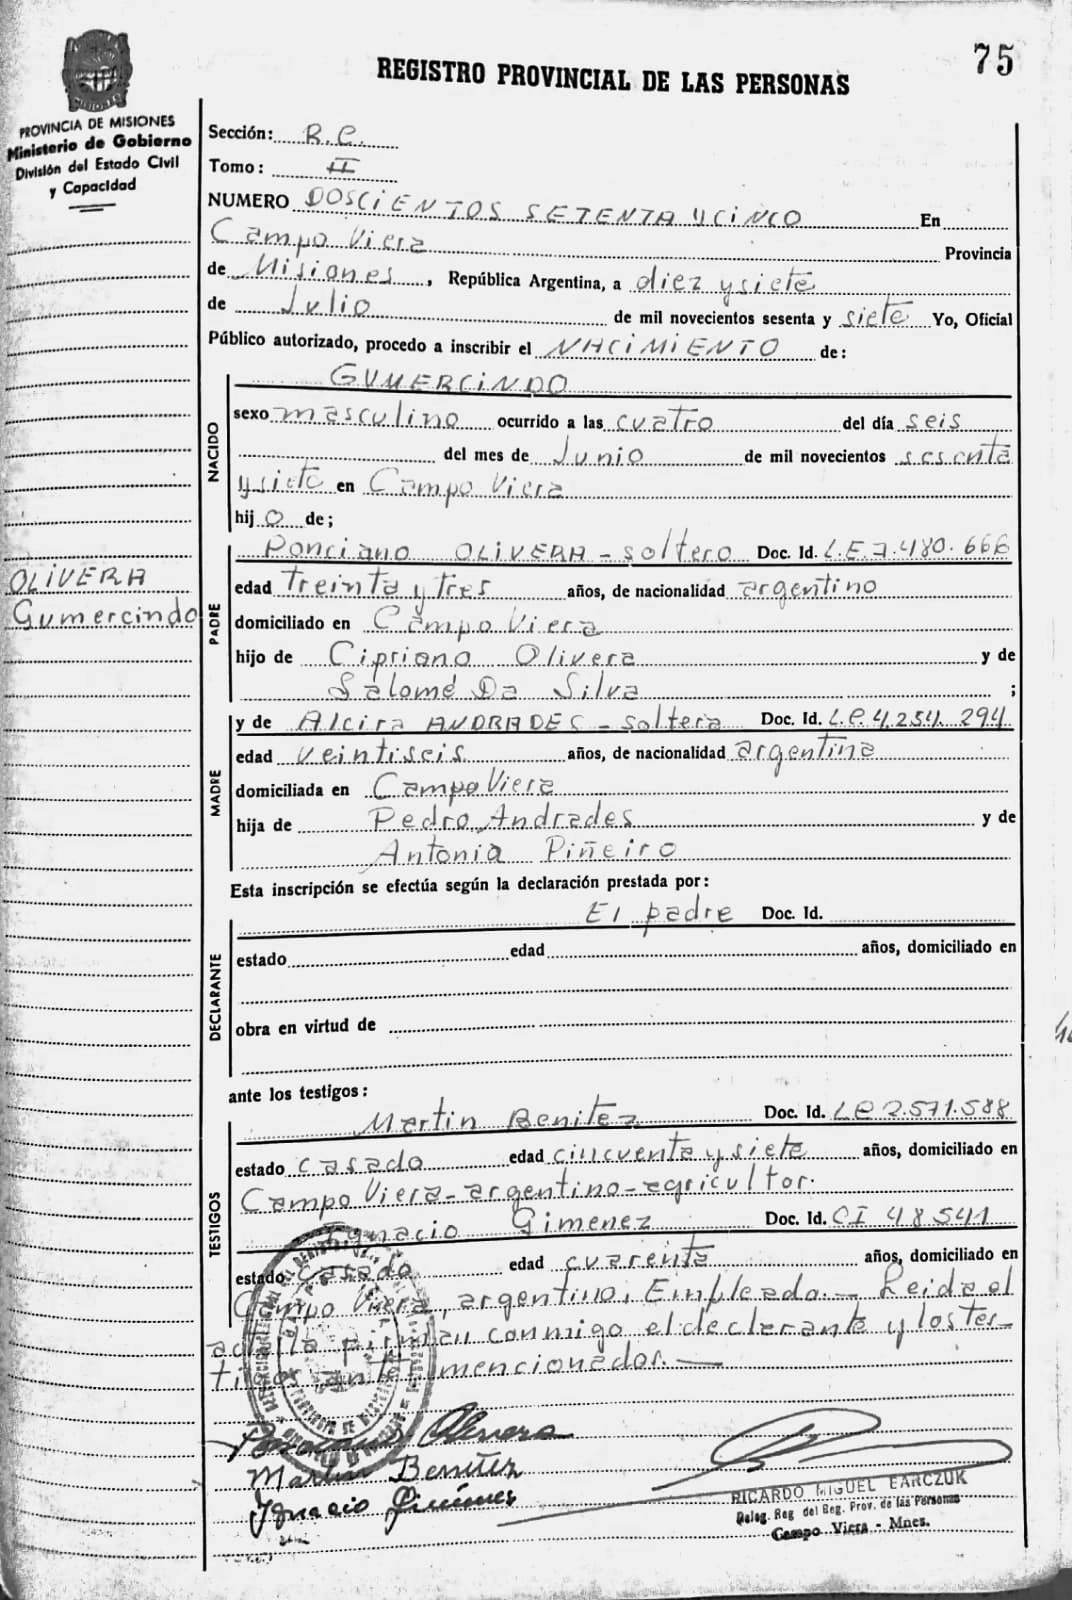 75
REGISTRO PROVINCIAL DE LAS PERSONAS
PROVINCIA DE MISIONES
Ministerio de Gobierno
División del Estado Civil
y Capacidad
Sección: R.C.
Tomo: II
NUMERO DOSCIENTOS SETENTA Y CINCO En
Campo Viera Provincia
de Misiones, República Argentina, a diez y siete
de Julio de mil novecientos sesenta y siete Yo, Oficial
Público autorizado, procedo a inscribir el NACIMIENTO de:
NACIDO
GUMERCINDO
sexo masculino ocurrido a las cuatro del día seis
del mes de Junio de mil novecientos sesenta
y siete en Campo Viera
hijo de;
OLIVERA
Gumercindo
PADRE
Ponciano OLIVERA - soltero Doc. Id. L.E 7.480.666
edad treinta y tres años, de nacionalidad argentino
domiciliado en Campo Viera
hijo de Cipriano Olivera y de
Salomé Da Silva ;
MADRE
y de Alcira ANDRADES - soltera Doc. Id. L.C 4.254.294
edad veintiseis años, de nacionalidad argentina
domiciliada en Campo Viera
hija de Pedro Andrades y de
Antonia Piñeiro
Esta inscripción se efectúa según la declaración prestada por:
DECLARANTE
El padre Doc. Id.
estado edad años, domiciliado en
obra en virtud de
ante los testigos:
TESTIGOS
Martin Benitez Doc. Id. L.E 2.571.588
estado casado edad cincuenta y siete años, domiciliado en
Campo Viera - argentino - agricultor.
Ignacio Gimenez Doc. Id. CI 48541
estado casado edad cuarenta años, domiciliado en
Campo Viera, argentino, Empleado. - Leida el
acta la firman conmigo el declarante y los tes-
tigos antes mencionados. -
Ponciano Olivera
Martin Benitez
Ignacio Giménez
RICARDO MIGUEL EARCZUK
Deleg. Reg. del Reg. Prov. de las Personas
Campo Viera - Mnes.